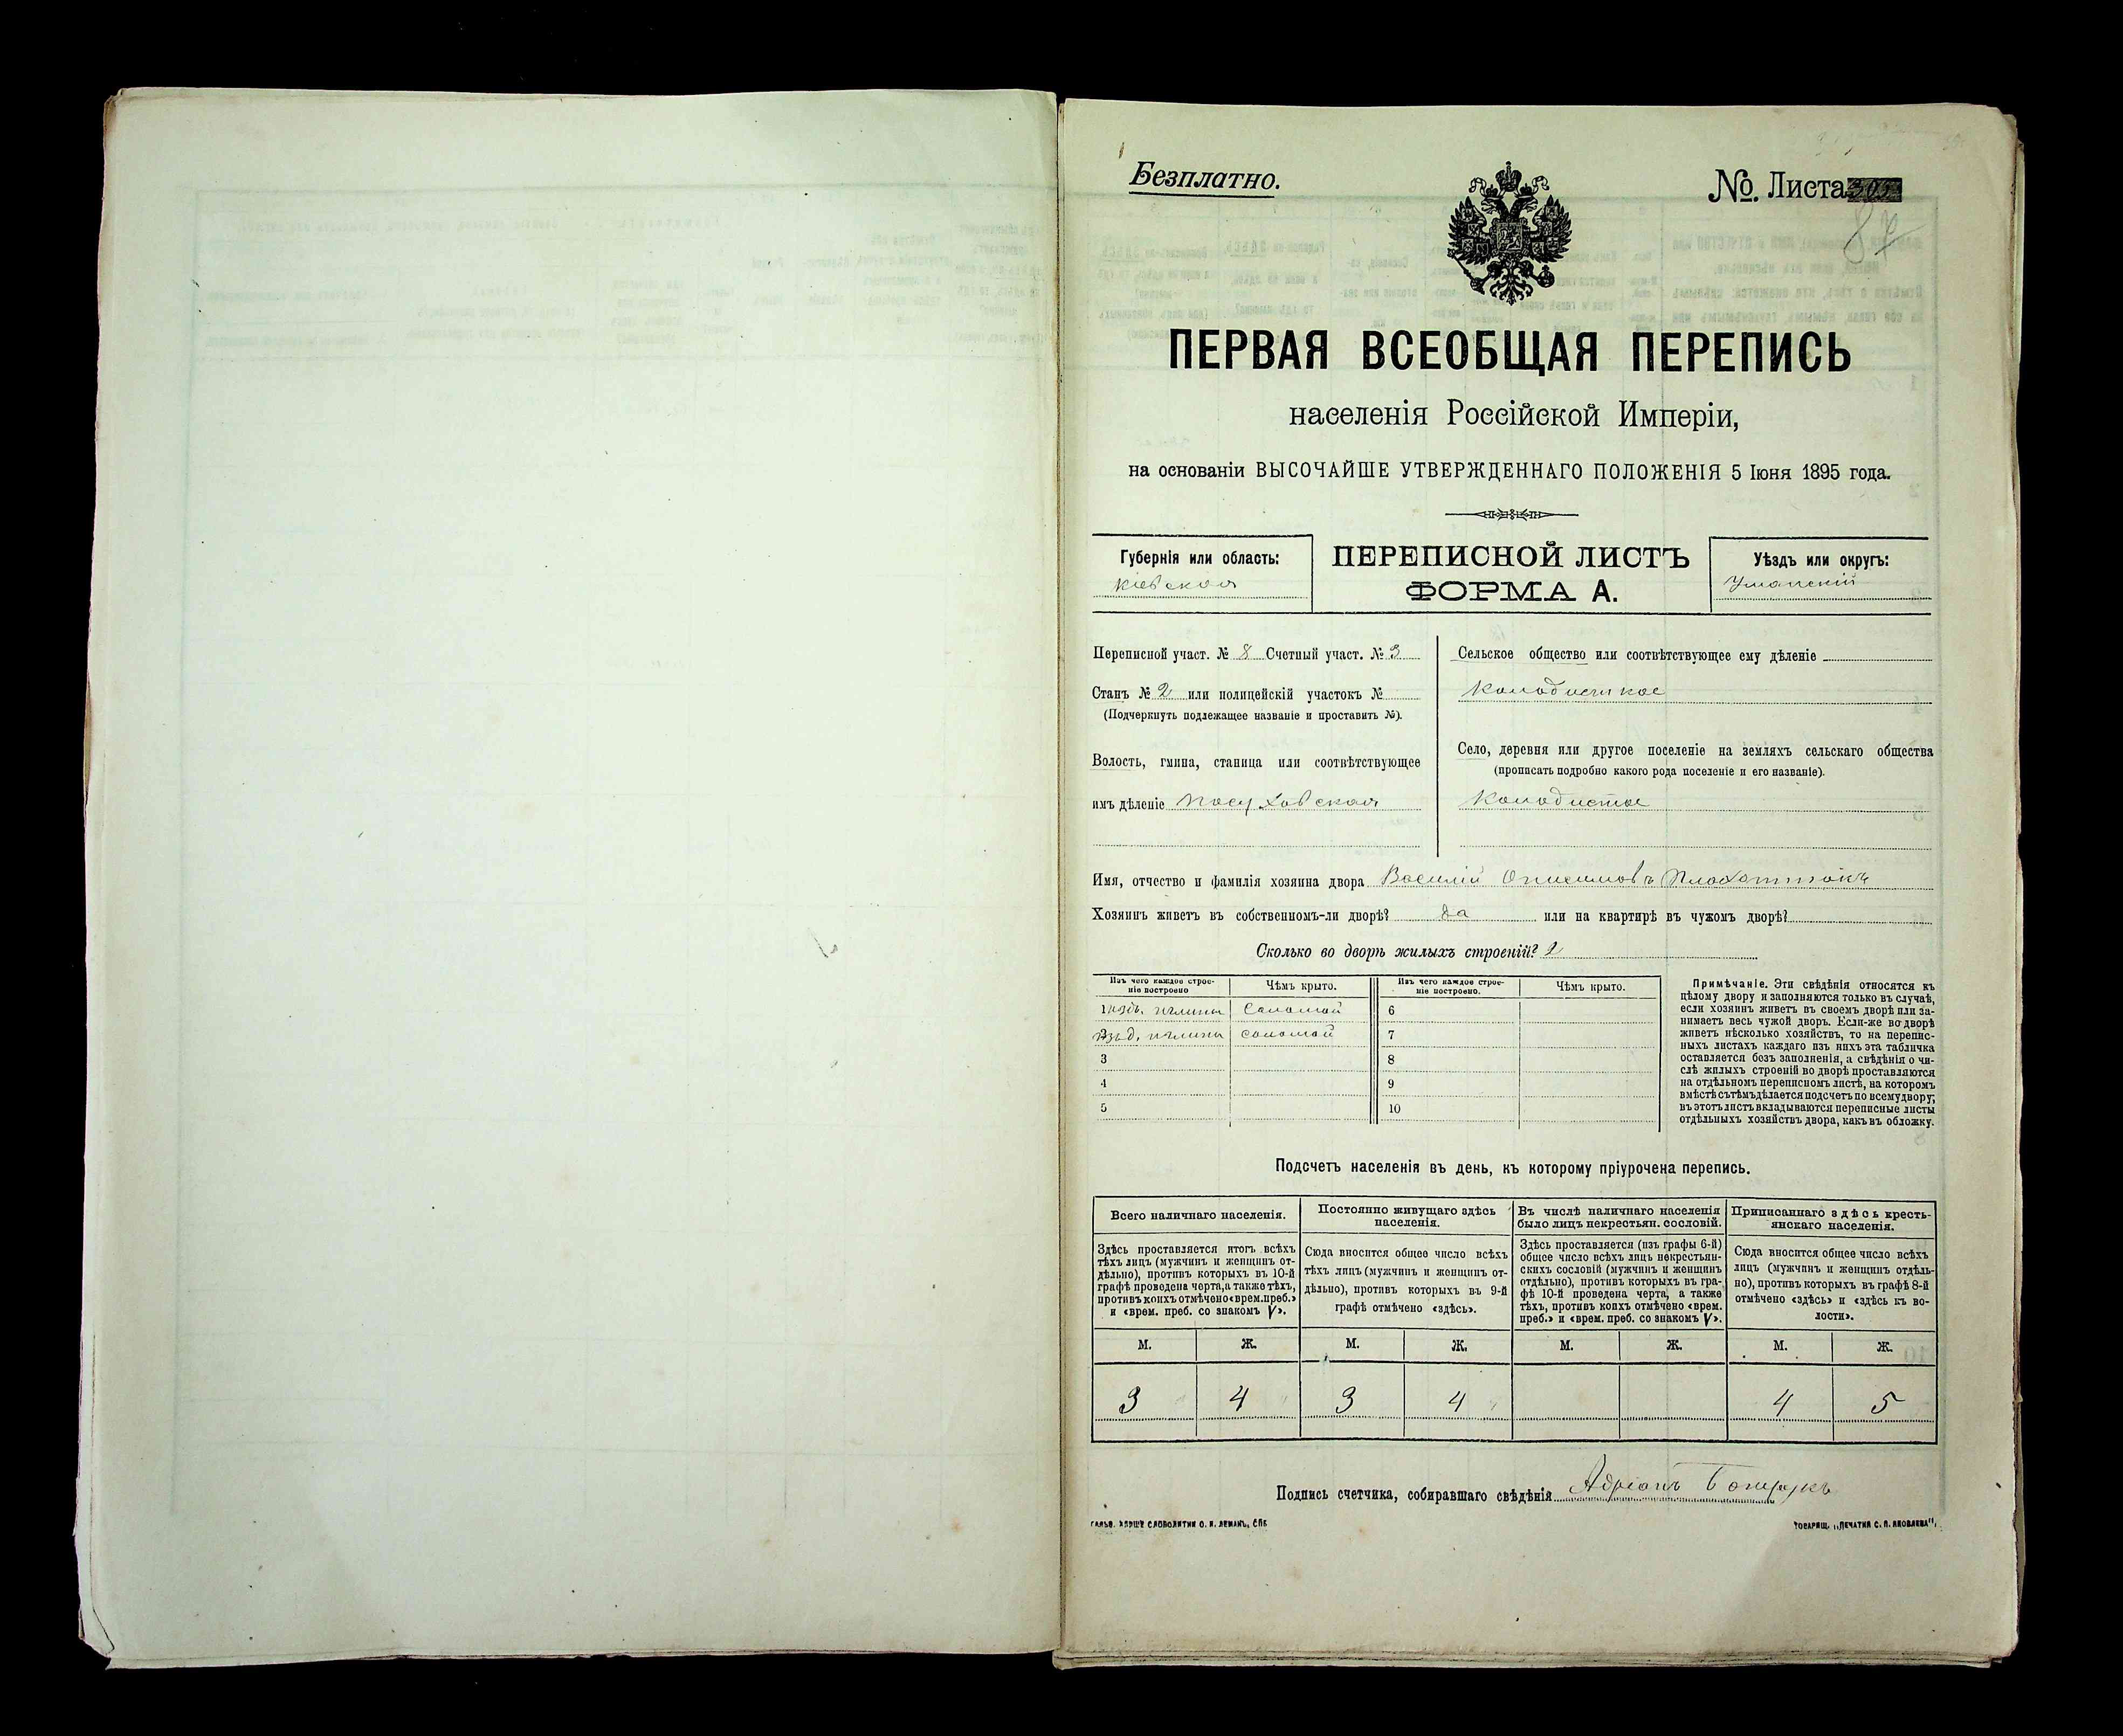 Безплатно.
№ Листа
87
ПЕРВАЯ ВСЕОБЩАЯ ПЕРЕПИСЬ
населенія Россійской Имперіи,
на основаніи ВЫСОЧАЙШЕ УТВЕРЖДЕННАГО ПОЛОЖЕНІЯ 5 Іюня 1895 года.
Губернія или область:
Кіевская
ПЕРЕПИСНОЙ ЛИСТЪ
ФОРМА А.
Уѣздъ или округъ:
Уманскій
Переписной участ. № 8 Счетный участ. № 3
Станъ № 2 или полицейскій участокъ №
(Подчеркнуть подлежащее названіе и проставить №).
Волость, гмина, станица или соотвѣтствующее
имъ дѣленіе Посуховская
Сельское общество или соотвѣтствующее ему дѣленіе
Колодисткое
Село, деревня или другое поселеніе на земляхъ сельскаго общества
(прописать подробно какого рода поселеніе и его названіе).
Колодистое
Имя, отчество и фамилія хозяина двора Василій Онисимовъ
Хозяинъ живетъ въ собственномъ-ли дворѣ? да или на квартирѣ въ чужомъ дворѣ?
Сколько во дворѣ жилыхъ строеній? 2
Изъ чего каждое строе-
ніе построено
Чѣмъ крыто.
Изъ чего каждое строе-
ніе построено.
Чѣмъ крыто.
1 изъ д. и глины соломой 6
2 изъ д. и глины соломой 7
3 8
4 9
5 10
Примѣчаніе. Эти свѣдѣнія относятся къ
цѣлому двору и заполняются только въ случаѣ,
если хозяинъ живетъ въ своемъ дворѣ или за-
нимаетъ весь чужой дворъ. Если-же во дворѣ
живетъ нѣсколько хозяйствъ, то на перепис-
ныхъ листахъ каждаго изъ нихъ эта табличка
оставляется безъ заполненія, а свѣдѣнія о чи-
слѣ жилыхъ строеній во дворѣ проставляются
на отдѣльномъ переписномъ листѣ, на которомъ
вмѣстѣ съ тѣмъ дѣлается подсчетъ по всему двору;
въ этотъ листъ вкладываются переписные листы
отдѣльныхъ хозяйствъ двора, какъ въ обложку.
Подсчетъ населенія въ день, къ которому пріурочена перепись.
Всего наличнаго населенія.
Здѣсь проставляется итогъ всѣхъ
тѣхъ лицъ (мужчинъ и женщинъ от-
дѣльно), противъ которыхъ въ 10-й
графѣ проведена черта, а также тѣхъ,
противъ коихъ отмѣчено «врем. преб.»
и «врем. преб. со знакомъ V».
Постоянно живущаго здѣсь
населенія.
Сюда вносится общее число всѣхъ
тѣхъ лицъ (мужчинъ и женщинъ от-
дѣльно), противъ которыхъ въ 9-й
графѣ отмѣчено «здѣсь».
Въ числѣ наличнаго населенія
было лицъ некрестьян. сословій.
Здѣсь проставляется (изъ графы 6-й)
общее число всѣхъ лицъ некрестьян-
скихъ сословій (мужчинъ и женщинъ
отдѣльно), противъ которыхъ въ гра-
фѣ 10-й проведена черта, а также
тѣхъ, противъ коихъ отмѣчено «врем.
преб.» и «врем. преб. со знакомъ V».
Приписаннаго здѣсь кресть-
янскаго населенія.
Сюда вносится общее число всѣхъ
лицъ (мужчинъ и женщинъ отдѣль-
но), противъ которыхъ въ графѣ 8-й
отмѣчено «здѣсь» и «здѣсь къ во-
лости».
М. Ж. М. Ж. М. Ж. М. Ж.
3 4 3 4 4 5
Подпись счетчика, собиравшаго свѣдѣнія Адріанъ
ТОВАРИЩ. „ПЕЧАТНЯ С. П. ЯКОВЛЕВА“,